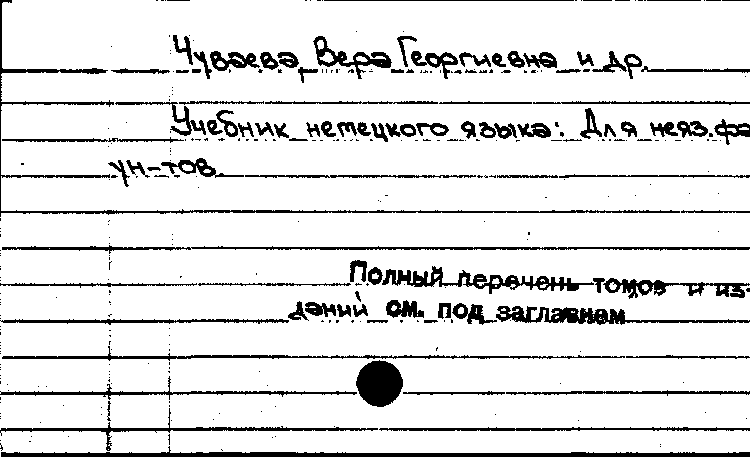 Чуваева, Вера Георгиевна и др.
Учебник немецкого языка: Для неяз. фа
ун-тов.
Полный перечень томов и из-
даний см. под заглавием